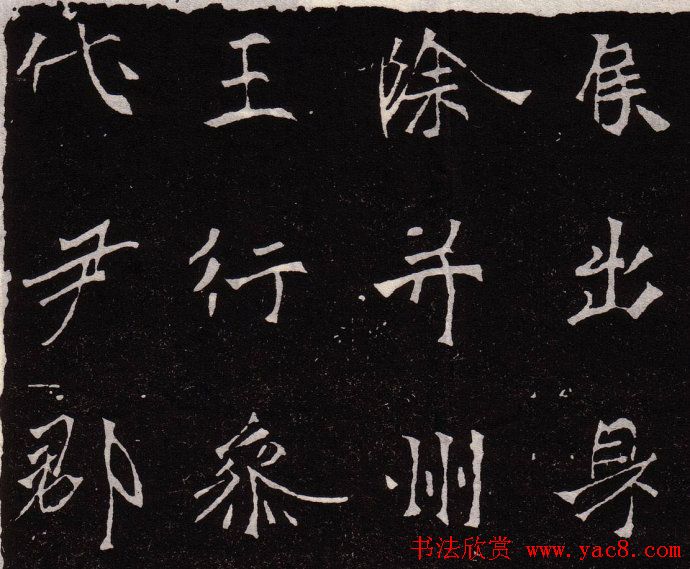 侯出身
除并州
王行參
代尹郡
书法欣赏 www.yac8.com